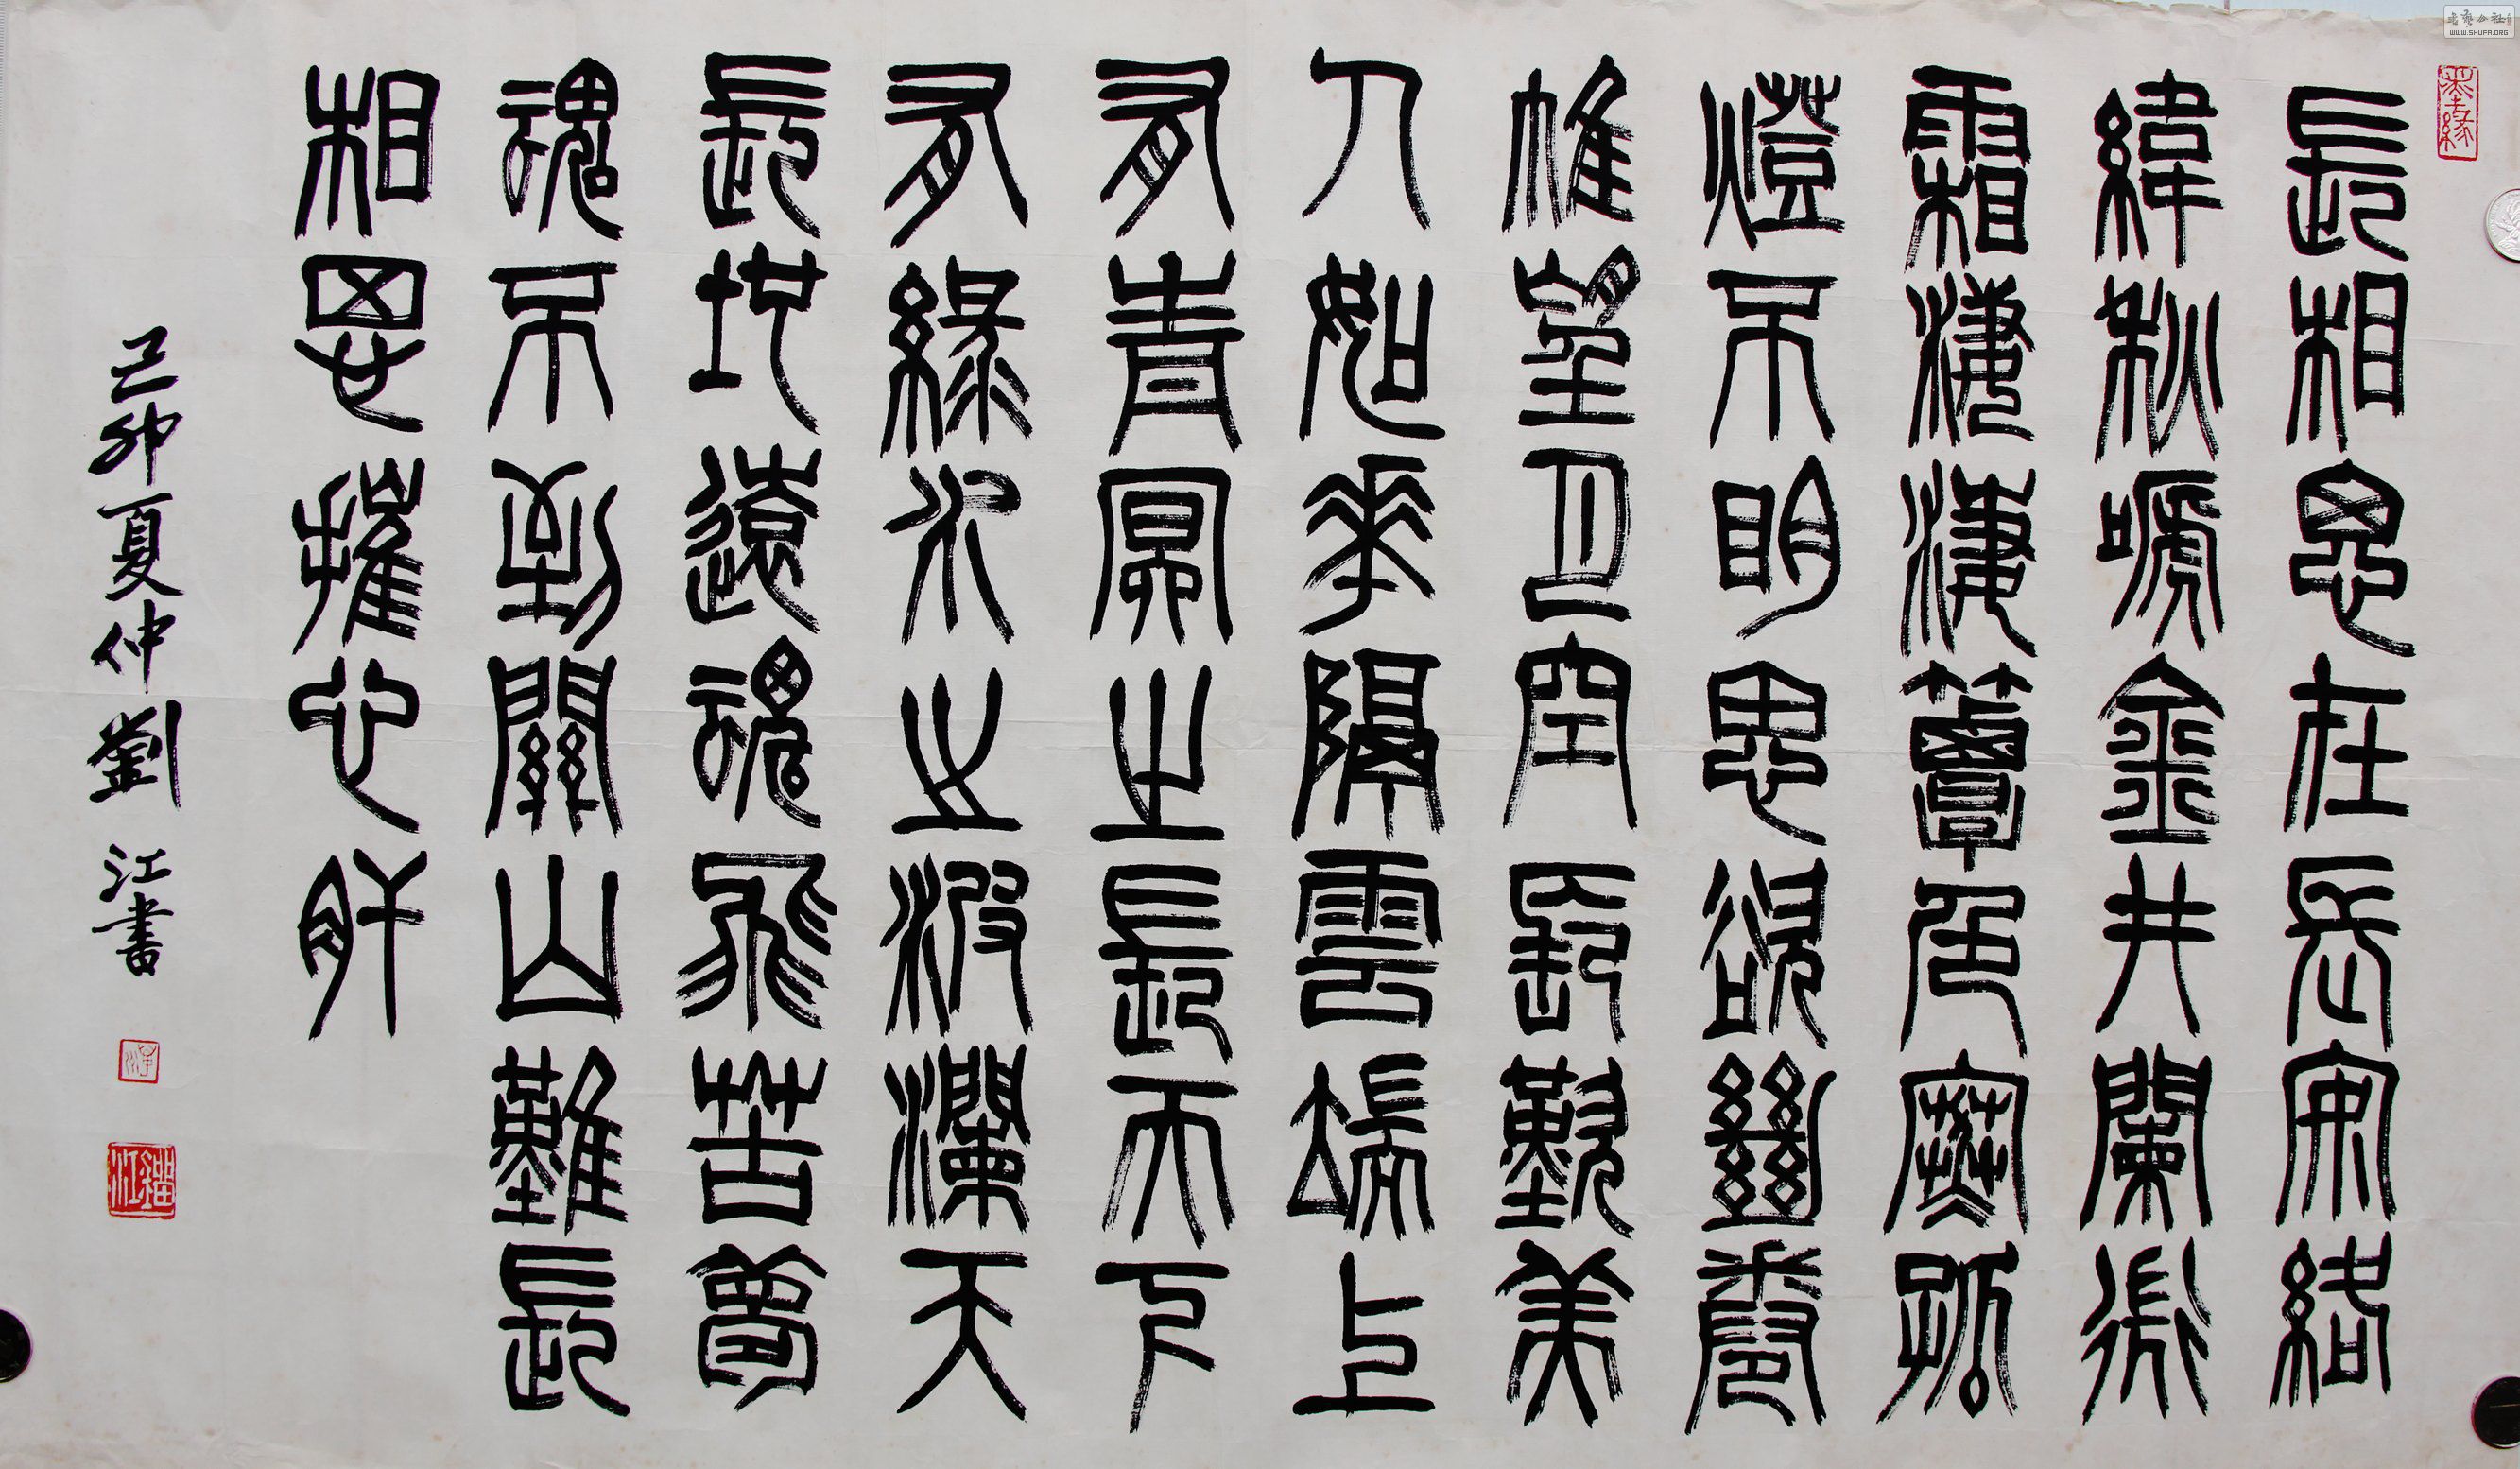 墨緣
長相思在長安絡
緯秋嗁金井闌微
霜淒淒簟色寒孤
燈不明思欲絕卷
帷望月空長歎美
人如花隔雲端上
有青冥之長天下
有綠水之波瀾天
長地遠魂飛苦夢
魂不到關山難長
相思摧心肝
己卯夏仲劉江書
劉江
書藝公社
WWW.SHUFA.ORG